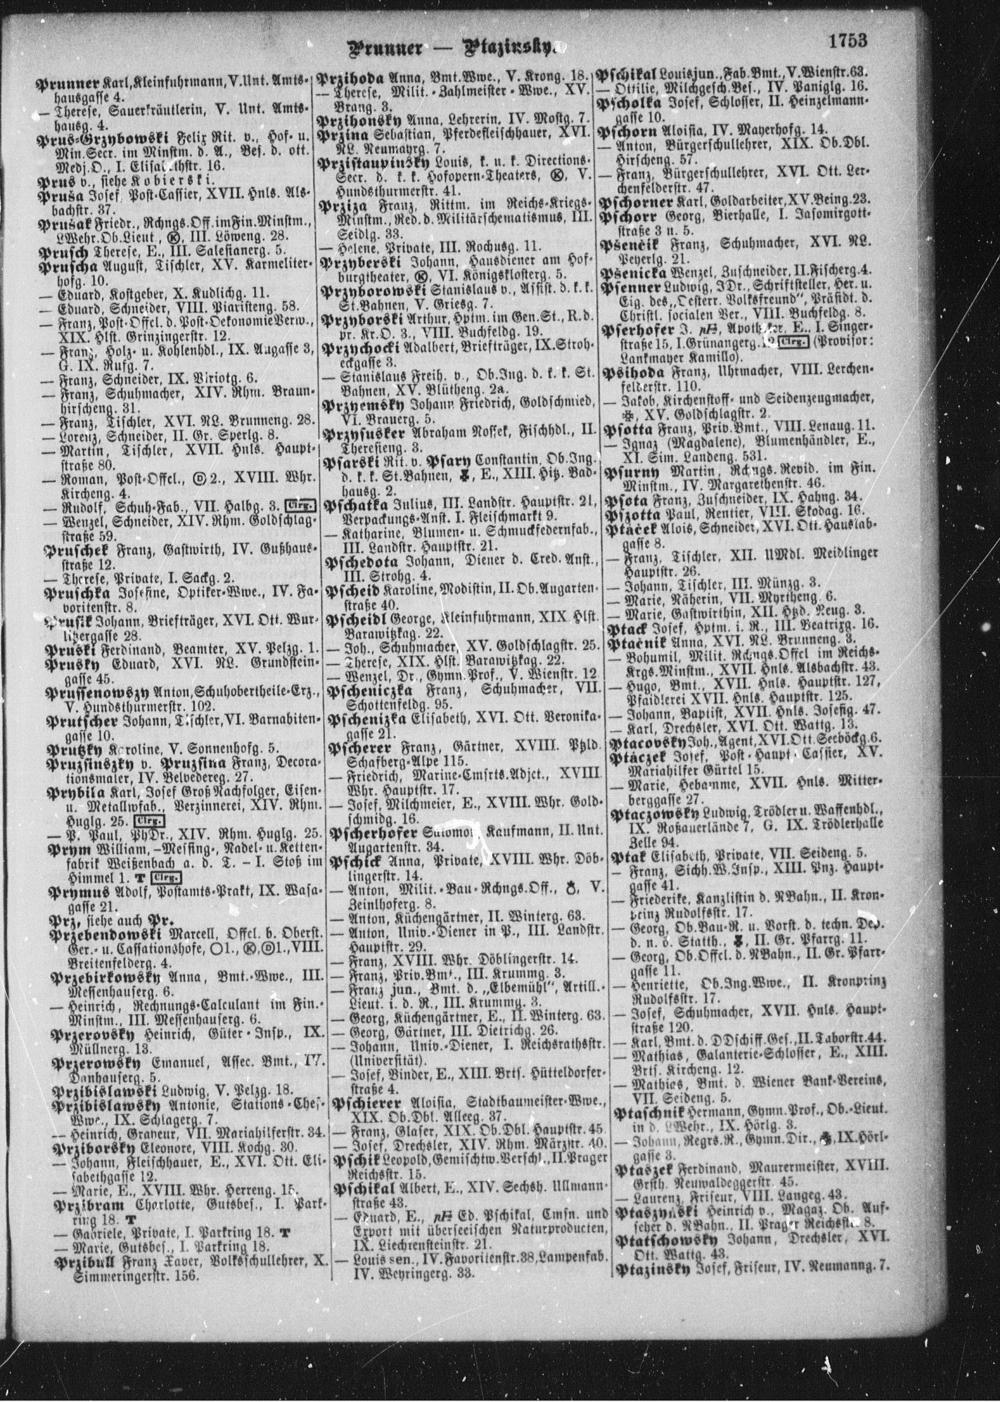 Prunner — Ptazinsky.
1753
Prunner Karl, Kleinfuhrmann, V. Unt. Amts-
hausgasse 4.
— Therese, Sauerkräutlerin, V. Unt. Amts-
hausg. 4.
Prus-Grzybowski Felix Rit. v., Hof- u.
Min.Secr. im Minstm. d. A., Bes. d. ott.
Medj.O., I. Elisabethstr. 16.
Prus v., siehe Kobierski.
Pruša Josef, Post-Cassier, XVII. Hnls. Als-
bachstr. 37.
Prušak Friedr., Rchngs.Off. im Fin.Minstm.,
LWehr.Ob.Lieut., Ⓚ, III. Löweng. 28.
Prusch Therese, E., III. Salesianerg. 5.
Pruscha August, Tischler, XV. Karmeliter-
hofg. 10.
— Eduard, Kostgeber, X. Kudlichg. 11.
— Eduard, Schneider, VIII. Piaristeng. 58.
— Franz, Post-Offcl. d. Post-OekonomieVerw.,
XIX. Hlst. Grinzingerstr. 12.
— Franz, Holz- u. Kohlenhdl., IX. Augasse 3,
G. IX. Rufg. 7.
— Franz, Schneider, IX. Viriotg. 6.
— Franz, Schuhmacher, XIV. Rhm. Braun-
hirscheng. 31.
— Franz, Tischler, XVI. NL. Brunneng. 28.
— Lorenz, Schneider, II. Gr. Sperlg. 8.
— Martin, Tischler, XVII. Hnls. Haupt-
straße 80.
— Roman, Post-Offcl., Ⓓ 2., XVIII. Whr.
Kircheng. 4.
— Rudolf, Schuh-Fab., VII. Halbg. 3. Clrg.
— Wenzel, Schneider, XIV. Rhm. Goldschlag-
straße 59.
Pruschek Franz, Gastwirth, IV. Gußhaus-
straße 12.
— Therese, Private, I. Sackg. 2.
Pruschka Josefine, Optiker-Wwe., IV. Fa-
voritenstr. 8.
Prusik Johann, Briefträger, XVI. Ott. Wur-
litzergasse 28.
Pruski Ferdinand, Beamter, XV. Pelzg. 1.
Prusky Eduard, XVI. NL. Grundstein-
gasse 45.
Prussenowszy Anton, Schuhobertheile-Erz.,
V. Hundsthurmerstr. 102.
Prutscher Johann, Tischler, VI. Barnabiten-
gasse 10.
Prutzky Karoline, V. Sonnenhofg. 5.
Pruzsinszky v. Pruzsina Franz, Decora-
tionsmaler, IV. Belvedereg. 27.
Prybila Karl, Josef Groß Nachfolger, Eisen-
u. Metallwfab., Verzinnerei, XIV. Rhm.
Huglg. 25. Clrg.
— P. Paul, PhDr., XIV. Rhm. Huglg. 25.
Prym William, -Messing-, Nadel- u. Ketten-
fabrik Weißenbach a. d. T. - I. Stoß im
Himmel 1. T Clrg.
Prymus Adolf, Postamts-Prakt, IX. Wasa-
gasse 21.
Prz, siehe auch Pr.
Przebendowski Marcell, Offcl. b. Oberst.
Ger.- u. Cassationshofe, 〇1., Ⓚ,Ⓓ1., VIII.
Breitenfelderg. 4.
Przebirkowsky Anna, Bmt.-Wwe., III.
Messenhauserg. 6.
— Heinrich, Rechnungs-Calculant im Fin.-
Minstm., III. Messenhauserg. 6.
Przerovsky Heinrich, Güter-Insp., IX.
Müllnerg. 13.
Przerowsky Emanuel, Assec. Bmt., IV.
Danhauserg. 5.
Przibislawski Ludwig, V. Pelzg. 18.
Przibislawsky Antonie, Stations-Chef-
Wwe., IX. Schlagerg. 7.
— Heinrich, Graveur, VII. Mariahilferstr. 34.
Prziborsky Eleonore, VIII. Kochg. 30.
— Johann, Fleischhauer, E., XVI. Ott. Eli-
sabethgasse 12.
— Marie, E., XVIII. Whr. Herreng. 15.
Przibram Charlotte, Gutsbes., I. Park-
ring 18. T
— Gabriele, Private, I. Parkring 18. T
— Marie, Gutsbes., I. Parkring 18.
Przibull Franz Xaver, Volksschullehrer, X.
Simmeringerstr. 156.
Przihoda Anna, Bmt.Wwe., V. Krong. 18.
— Therese, Milit.-Zahlmeister-Wwe., XV.
Brang. 3.
Przihonsky Anna, Lehrerin, IV. Mostg. 7.
Przina Sebastian, Pferdefleischhauer, XVI.
NL. Neumayrg. 7.
Przistaupinsky Louis, k. u. k. Directions-
Secr. d. k. k. Hofopern-Theaters, Ⓚ, V.
Hundsthurmerstr. 41.
Prziza Franz, Rittm. im Reichs-Kriegs-
Minstm., Red. d. Militärschematismus, III.
Seidlg. 33.
— Helene, Private, III. Rochusg. 11.
Przyberski Johann, Hausdiener am Hof-
burgtheater, Ⓚ, VI. Königsklosterg. 5.
Przyborowski Stanislaus v., Assist. d. k. k.
St.Bahnen, V. Griesg. 7.
Przyborski Arthur, Hptm. im Gen.St., R.d.
pr. Kr.O. 3., VIII. Buchfeldg. 19.
Przychocki Adalbert, Briefträger, IX. Stroh-
eckgasse 3.
— Stanislaus Freih. v., Ob.Ing. d. k. k. St.
Bahnen, XV. Blütheng. 2a.
Przyemsky Johann Friedrich, Goldschmied,
VI. Brauerg. 5.
Przysusker Abraham Nossek, Fischhdl., II.
Theresieng. 3.
Psarski Rit. v. Psary Constantin, Ob.Ing.
d. k. k. St.Bahnen, E., XIII. Hitz. Bad-
hausg. 2.
Pschatka Julius, III. Landstr. Hauptstr. 21,
Verpackungs-Anst. I. Fleischmarkt 9.
— Katharine, Blumen- u. Schmuckfedernfab.,
III. Landstr. Hauptstr. 21.
Pschedota Johann, Diener d. Cred. Anst.,
III. Strohg. 4.
Pscheid Karoline, Modistin, II. Ob. Augarten-
straße 40.
Pscheidl George, Kleinfuhrmann, XIX Hlst.
Barawitzkag. 22.
— Joh., Schuhmacher, XV. Goldschlagstr. 25.
— Therese, XIX. Hlst. Barawitzkag. 22.
— Wenzel, Dr., Gymn.Prof., V. Wienstr. 12
Pscheniczka Franz, Schuhmacher, VII.
Schottenfeldg. 95.
Pschenizka Elisabeth, XVI. Ott. Veronika-
gasse 21.
Pscherer Franz, Gärtner, XVIII. Ptzld.
Schafberg-Alpe 115.
— Friedrich, Marine-Cmsrts.Adjct., XVIII.
Whr. Hauptstr. 17.
— Josef, Milchmeier, E., XVIII. Whr. Gold-
schmidg. 16.
Pscherhofer Salomon, Kaufmann, II. Unt.
Augartenstr. 34.
Pschick Anna, Private, XVIII. Whr. Döb-
lingerstr. 14.
— Anton, Milit.-Bau-Rchngs.Off., V.
Zeinlhoferg. 8.
— Anton, Küchengärtner, II. Winterg. 63.
— Anton, Univ.-Diener in P., III. Landstr.
Hauptstr. 29.
— Franz, XVIII. Whr. Döblingerstr. 14.
— Franz, Priv.Bmt., III. Krummg. 3.
— Franz jun., Bmt. d. „Elbemühl", Artill.-
Lieut. i. d. R., III. Krummg. 3.
— Georg, Küchengärtner, E., II. Winterg. 63.
— Georg, Gärtner, III. Dietrichg. 26.
— Johann, Univ.-Diener, I. Reichsrathsstr.
(Universität).
— Josef, Binder, E., XIII. Brts. Hütteldorfer-
straße 4.
Pschierer Aloisia, Stadtbaumeister-Wwe.,
XIX. Ob.Dbl. Alleeg. 37.
— Franz, Glaser, XIX. Ob.Dbl. Hauptstr. 45.
— Josef, Drechsler, XIV. Rhm. Märzstr. 40.
Pschik Leopold, Gemischtw.Verschl., II. Prager
Reichsstr. 15.
Pschikal Albert, E., XIV. Sechsh. Ullmann-
straße 43.
— Eduard, E., pH Ed. Pschikal, Cmsn. und
Export mit überseeischen Naturproducten,
IX. Liechtensteinstr. 21.
— Louis sen., IV. Favoritenstr. 38, Lampenfab.
IV. Weyringerg. 33.
Pschikal Louis jun., Fab.Bmt., V. Wienstr. 63.
— Ottilie, Milchgesch.Bes., IV. Paniglg. 16.
Pscholka Josef, Schlosser, II. Heinzelmann-
gasse 10.
Pschorn Aloisia, IV. Mayerhofg. 14.
— Anton, Bürgerschullehrer, XIX. Ob.Dbl.
Hirscheng. 57.
— Franz, Bürgerschullehrer, XVI. Ott. Ler-
chenfelderstr. 47.
Pschorner Karl, Goldarbeiter, XV. Being. 23.
Pschorr Georg, Bierhalle, I. Jasomirgott-
straße 3 u. 5.
Psenčik Franz, Schuhmacher, XVI. NL.
Peyerlg. 21.
Psenicka Wenzel, Zuschneider, II. Fischerg. 4.
Psenner Ludwig, JDr., Schriftsteller, Her. u.
Eig. des „Oesterr. Volksfreund", Präsidt. d.
Christl. socialen Ver., VIII. Buchfeldg. 8.
Pserhofer J. pH, Apotheker, E., I. Singer-
straße 15, I. Grünangerg. Clrg. (Provisor:
Lankmayer Kamillo).
Psihoda Franz, Uhrmacher, VIII. Lerchen-
felderstr. 110.
— Jakob, Kirchenstoff- und Seidenzeugmacher,
XV. Goldschlagstr. 2.
Psotta Franz, Priv.Bmt., VIII. Lenaug. 11.
— Ignaz (Magdalene), Blumenhändler, E.,
XI. Sim. Landeng. 531.
Psurny Martin, Rchngs.Revid. im Fin.
Minstm., IV. Margarethenstr. 46.
Psota Franz, Zuschneider, IX. Hahng. 34.
Pszotta Paul, Rentier, VIII. Skodag. 16.
Ptaček Alois, Schneider, XVI. Ott. Hauslab-
gasse 8.
— Franz, Tischler, XII. UMdl. Meidlinger
Hauptstr. 26.
— Johann, Tischler, III. Münzg. 3.
— Marie, Näherin, VII. Myrtheng. 6.
— Marie, Gastwirthin, XII. Htzd. Neug. 3.
Ptack Josef, Hptm. i. R., III. Beatrixg. 16.
Ptačnik Anna, XVI. NL. Brunneng. 3.
— Bohumil, Milit. Rchngs.Offcl im Reichs-
Krgs.Minstm., XVII. Hnls. Alsbachstr. 43.
— Hugo, Bmt., XVII. Hnls. Hauptstr. 127,
Pfaidlerei XVII. Hnls. Hauptstr. 125.
— Johann, Baptist, XVII. Hnls. Josefig. 47.
— Karl, Drechsler, XVI. Ott. Wattg. 13.
Ptacovsky Joh., Agent, XVI. Ott. Seeböckg. 6.
Ptaczek Josef, Post-Haupt-Cassier, XV.
Mariahilfer Gürtel 15.
— Marie, Hebamme, XVII. Hnls. Mitter-
berggasse 27.
Ptaczowsky Ludwig, Trödler u. Waffenhdl.,
IX. Roßauerlände 7, G. IX. Trödlerhalle
Zelle 94.
Ptak Elisabeth, Private, VII. Seideng. 5.
— Franz, Sichh.W.Insp., XIII. Pnz. Haupt-
gasse 41.
— Friederike, Kanzlistin d. NBahn., II. Kron-
prinz Rudolfsstr. 17.
— Georg, Ob.Bau-R. u. Vorst. d. techn. Dep.
d. n. ö. Statth., II. Gr. Pfarrg. 11.
— Georg, Ob.Offcl. d. NBahn., II. Gr. Pfarr-
gasse 11.
— Henriette, Ob.Ing.Wwe., II. Kronprinz
Rudolfsstr. 17.
— Josef, Schuhmacher, XVII. Hnls. Haupt-
straße 120.
— Karl, Bmt. d. DDschiff.Ges., II. Taborstr. 44.
— Mathias, Galanterie-Schlosser, E., XIII.
Brts. Kircheng. 12.
— Mathies, Bmt. d. Wiener Bank-Vereins,
VII. Seideng. 5.
Ptaschnik Hermann, Gymn.Prof., Ob.-Lieut.
in d. LWehr., IX. Hörlg. 3.
— Johann, Regrs.R., Gymn.Dir., IX. Hörl-
gasse 3.
Ptaszek Ferdinand, Maurermeister, XVIII.
Grsth. Neuwaldeggerstr. 45.
— Laurenz, Friseur, VIII. Langeg. 43.
Ptaszynski Heinrich v., Magaz. Ob. Auf-
seher d. NBahn., II. Prager Reichsstr. 8.
Ptatschowsky Johann, Drechsler, XVI.
Ott. Wattg. 43.
Ptazinsky Josef, Friseur, IV. Neumanng. 7.